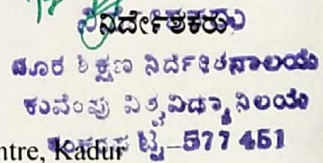 ನಿರ್ದೇಶಕರು
ದೂರ ಶಿಕ್ಷಣ ನಿರ್ದೇಶನಾಲಯ
ಕುವೆಂಪು ವಿಶ್ವವಿದ್ಯಾನಿಲಯ
577 451
ntre, Kadur